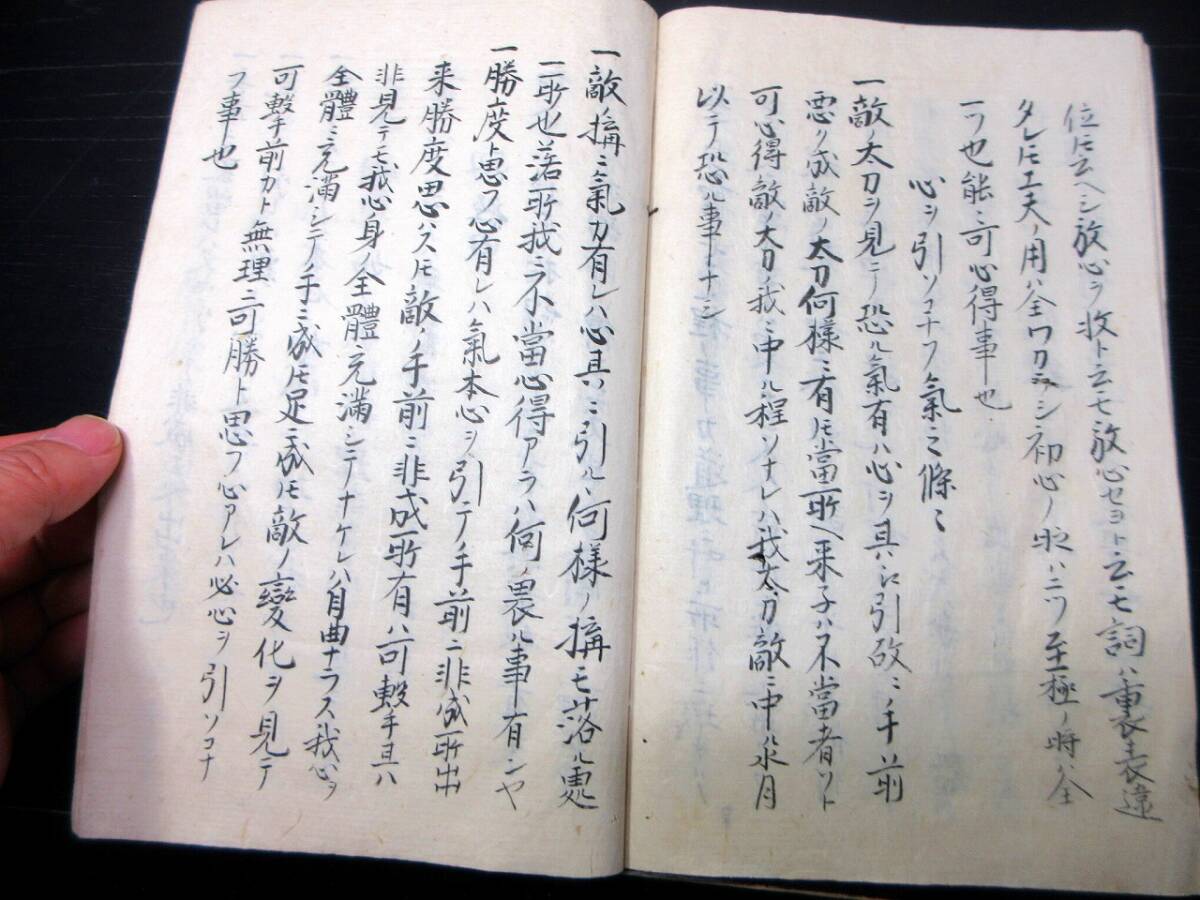 位ㇳモ云ヘシ放心ヲ收ト云モ放心セヨト云モ詞ハ裏表違
タレㇳモ工夫ノ用ハ全ワカラシ初心ノ時ハ二ツ至極ノ時ハ全
一ツ也能ニ可心得事也
心ヲ引ソコナフ氣ミ條ミ
一敵ノ太刀ヲ見テ恐ル氣有ハ心ヲ其ニ引故ニ手前
悪ク成敵ノ太刀何様ニ有ㇳモ當所ヘ来子ハ不當者ソト
可心得敵ノ太刀ノ我ニ中ル程ソナレハ我太刀敵ニ中水月
以テ恐ル事ナシ
一敵ノ搆ニ氣力有レハ心其ニ引ル何様ノ搆モ落ル處
一所也落所我ニ不當心得アラハ何ノ畏ル事有ンヤ
一勝度ト思フ心有レハ氣本心ヲ引テ手前ニ非成所出
来勝度思ハスㇳモ敵ノ手前ニ非成所有ハ可擊手ヨハ
非見テモ我心身ノ全體ニ充満シテナケレハ自曲ナラス我心ヲ
全體ニ充満シテ手ニ成ㇳモ足ニ成ㇳモ敵ノ變化ヲ見テ
可擊手前カト無理ニ可勝ト思フ心アレハ必心ヲ引ソコナ
フ事也